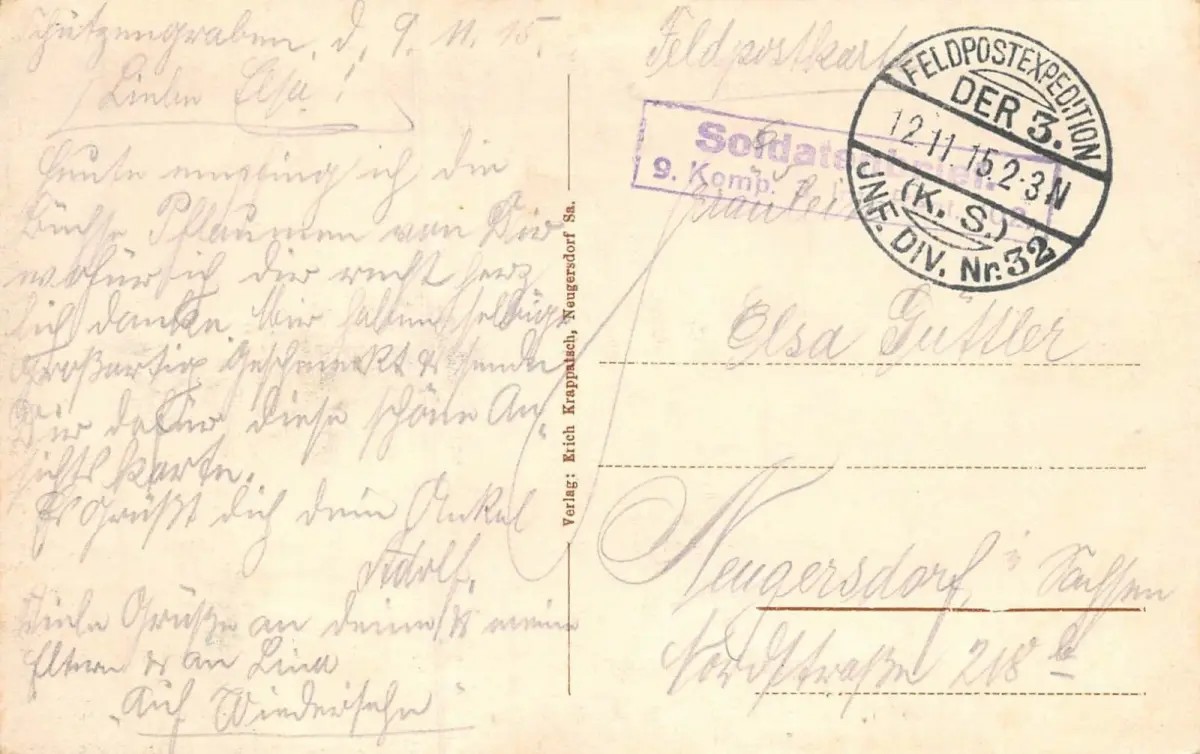 Schützengraben, d. 9. 11. 15.
Liebe Elsa!
Heute empfing ich die
Büchse Pflaumen von Dir
wofür ich dir recht herz
lich danke Wir haben selbige
großartig Geschmeckt & sende
Dir dafür diese schöne An
sichtskarte.
Es Grüßt dich dein Onkel
Adolf.
Viele Grüße an deine & meine
Eltern & an Lina
"Auf Wiedersehn"
Verlag: Erich Krappatsch, Neugersdorf Sa.
Feldpostkarte
Soldatenbrief.
9. Komp.
FELDPOSTEXPEDITION
DER 3.
12.11.15.2-3N
(K. S.)
INF. DIV. Nr. 32
Fräulein
Elsa Güttler
Neugersdorf, i Sachsen
Nordstraße 218 b